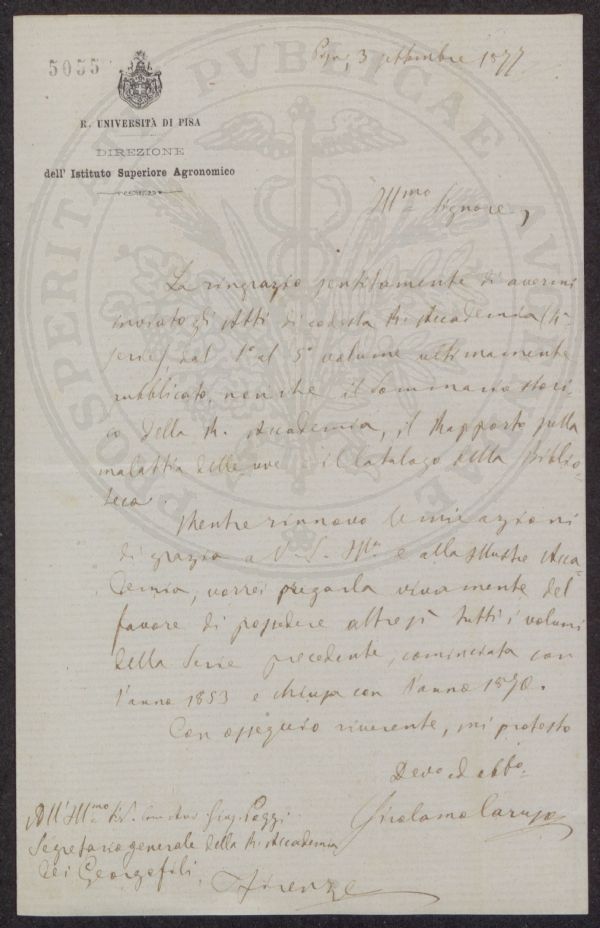 5055
Pisa, 3 settembre 1877
R. UNIVERSITÀ DI PISA
DIREZIONE
dell' Istituto Superiore Agronomico
Ill.mo Signore,
La ringrazio sentitamente di avermi
inviato gli Atti di codesta R. Accademia (4a
serie), dal 1° al 5° volume ultimamente
pubblicato, nonché il Sommario stori-
co della R. Accademia, il Rapporto sulla
malattia delle uve e il Catalogo della Biblio-
teca.
Mentre rinnovo le mie azioni
di grazia a V. S. Ill.ma e alla illustre Acca-
demia, vorrei pregarla vivamente del
favore di possedere altresì tutti i volumi
della Serie precedente, cominciata con
l'anno 1853 e chiusa con l'anno 1870.
Con ossequio riverente, mi protesto
Devo ed obbo
Girolamo Caruso
All'Ill.mo Sig. Comm. Avv. Gius. Poggi
Segretario generale della R. Accademia
dei Georgofili.
Firenze
PROSPERITATI PVBLICAE AVGENDAE